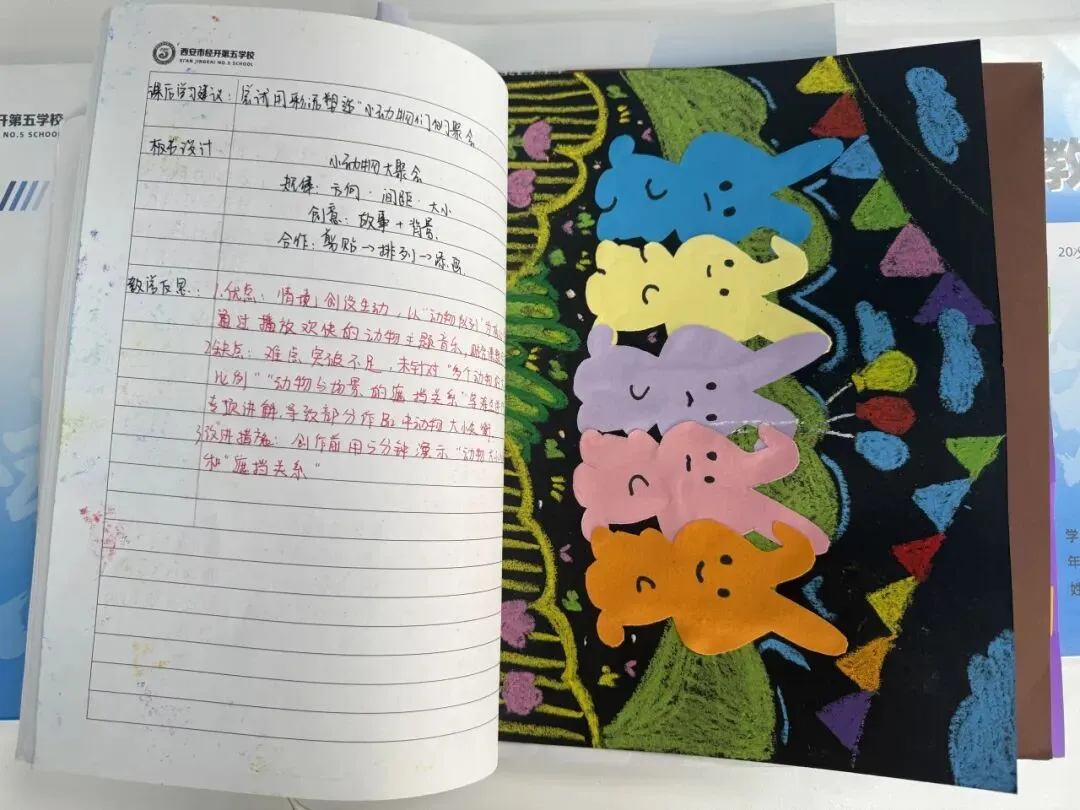 西安市经开第五学校
XI'AN JINGKAI NO.5 SCHOOL
开第五学校
NO.5 SCHOOL
课后学习建议：尝试用彩泥塑造"小动物们的聚会
板书设计
小动物大聚会
规律：方向·间距·大小
创意：故事＋背景
合作：剪贴→排列→添画
教学反思：1.优点：情境创设生动，以"动物
通过播放欢快的动物主题音乐，
2缺点：难点突破不足，未针对"多个动物
比例""动物与场景的遮挡关系"等难点
专项讲解，导致部分作品中动物大小
3改进措施：创作前用5分钟演示"动物大小
和"遮挡关系"
教
20
学
年
姓